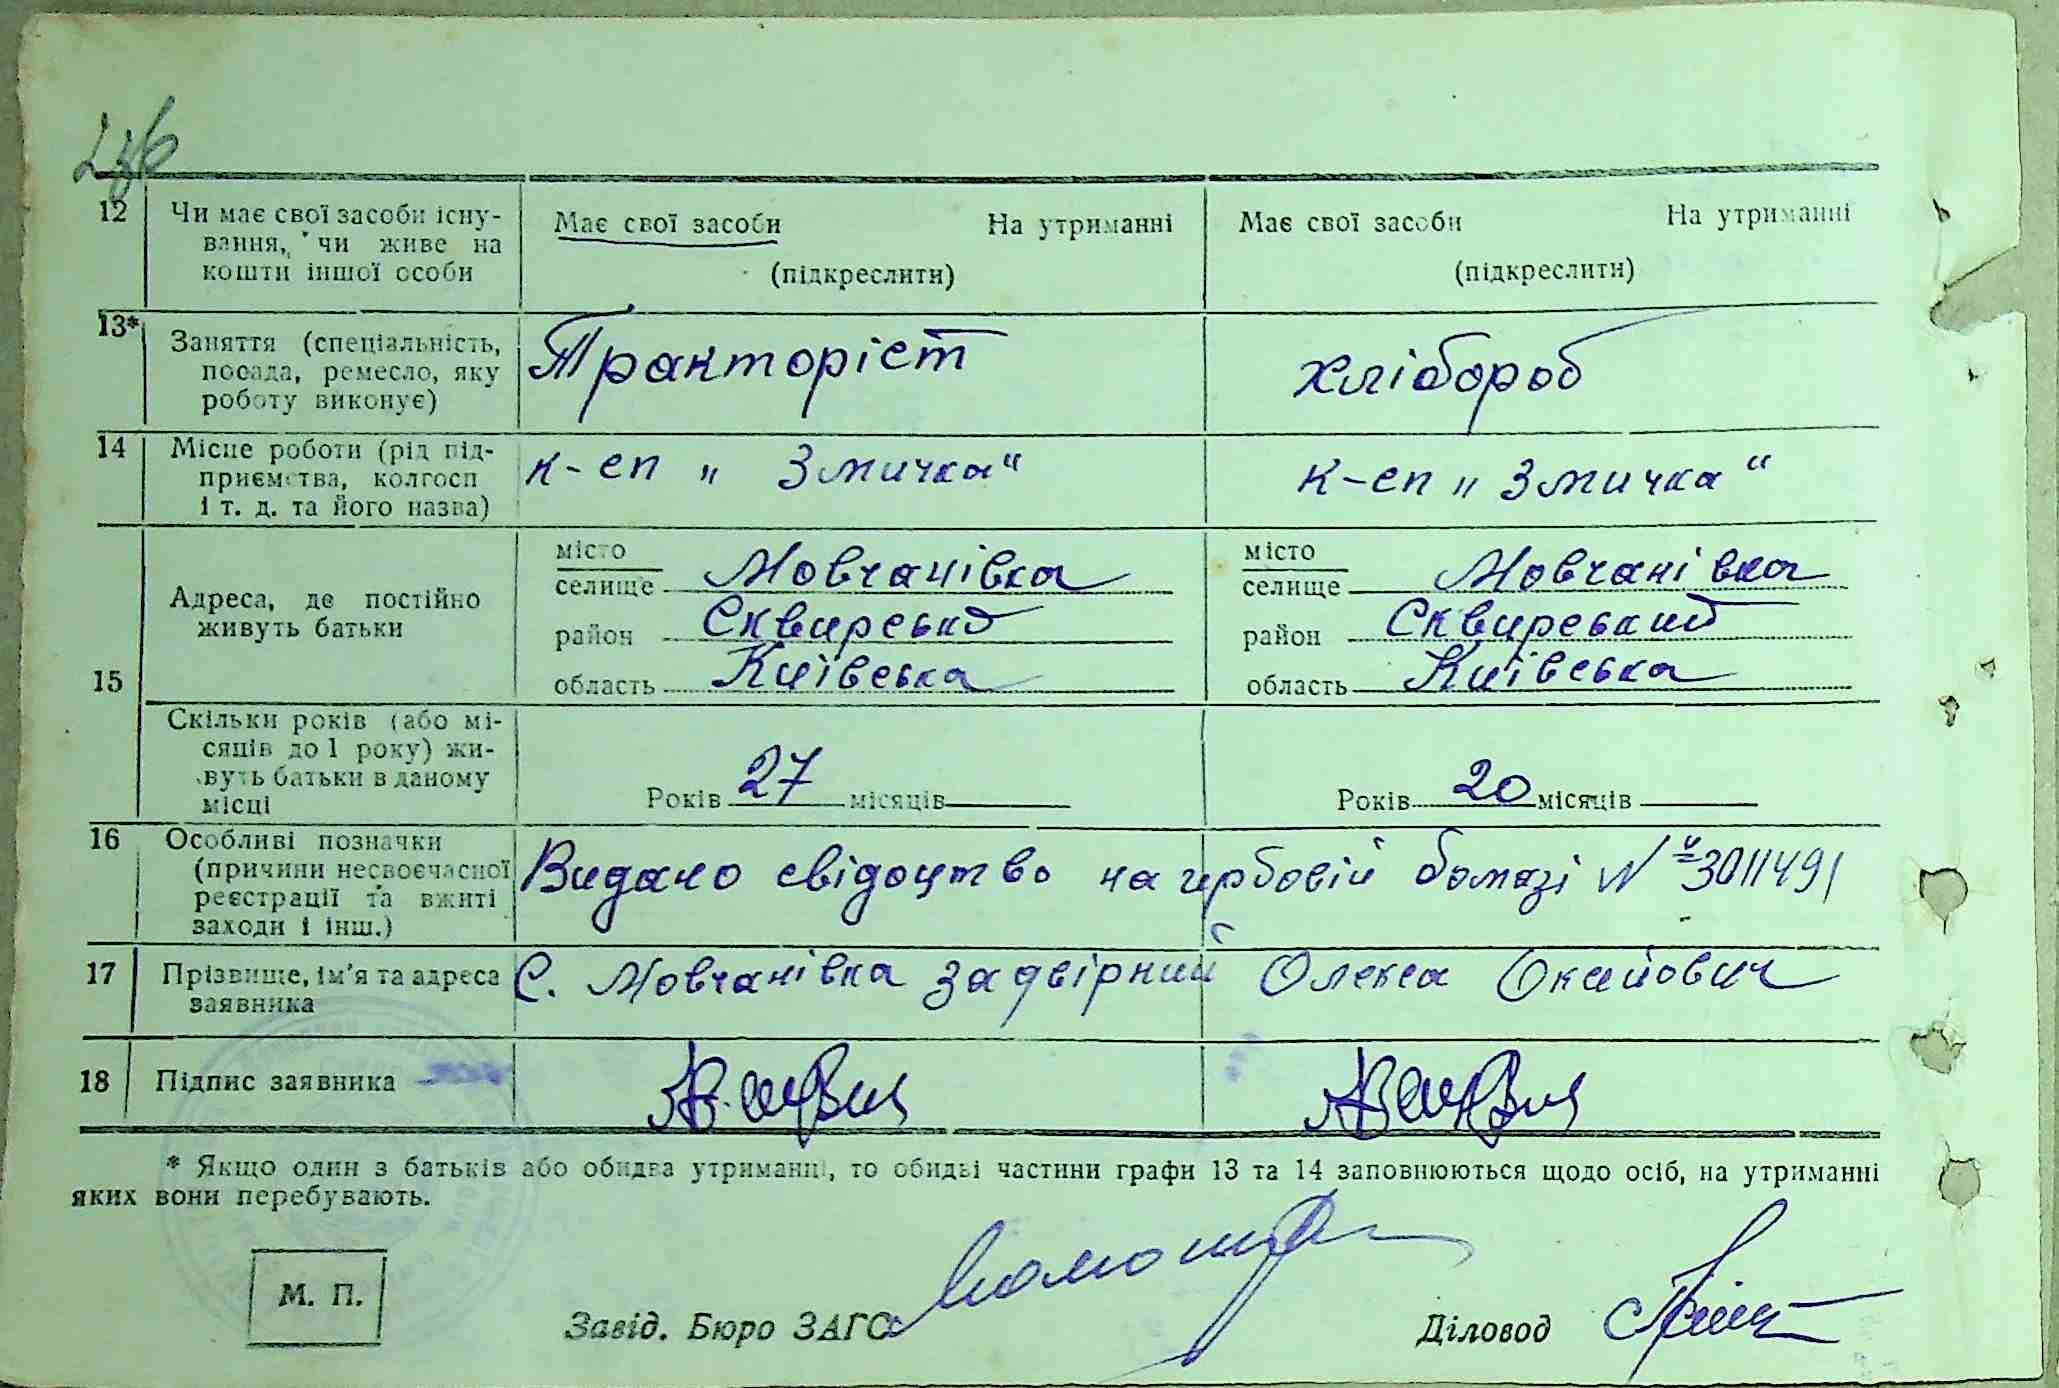 236
12 Чи має свої засоби існу- Має свої засоби На утриманні Має свої засоби На утриманні
вання, чи живе на
кошти іншої особи (підкреслити) (підкреслити)
13* Заняття (спеціальність, Тракторіст хлібороб
посада, ремесло, яку
роботу виконує)
14 Місце роботи (рід під- к-сп „Змичка" к-сп „Змичка"
приємства, колгосп
і т. д. та його назва)
15 Адреса, де постійно
живуть батьки
місто
селище Мовчанівка
район Сквирськ
область Київська
місто
селище Мовчанівка
район Сквирський
область Київська
Скільки років (або мі-
сяців до 1 року) жи-
вуть батьки в даному
місці
Років 27 місяців Років 20 місяців
16 Особливі позначки
(причини несвоєчасної
реєстрації та вжиті
заходи і інш.)
Видано свідоцтво на гербовій бомазі № 3011491
17 Прізвище, ім'я та адреса
заявника
С. Мовчанівка Задвірний Олекса
18 Підпис заявника
* Якщо один з батьків або обидва утриманці, то обидві частини графи 13 та 14 заповнюються щодо осіб, на утриманні
яких вони перебувають.
М. П.
Завід. Бюро ЗАГС Діловод